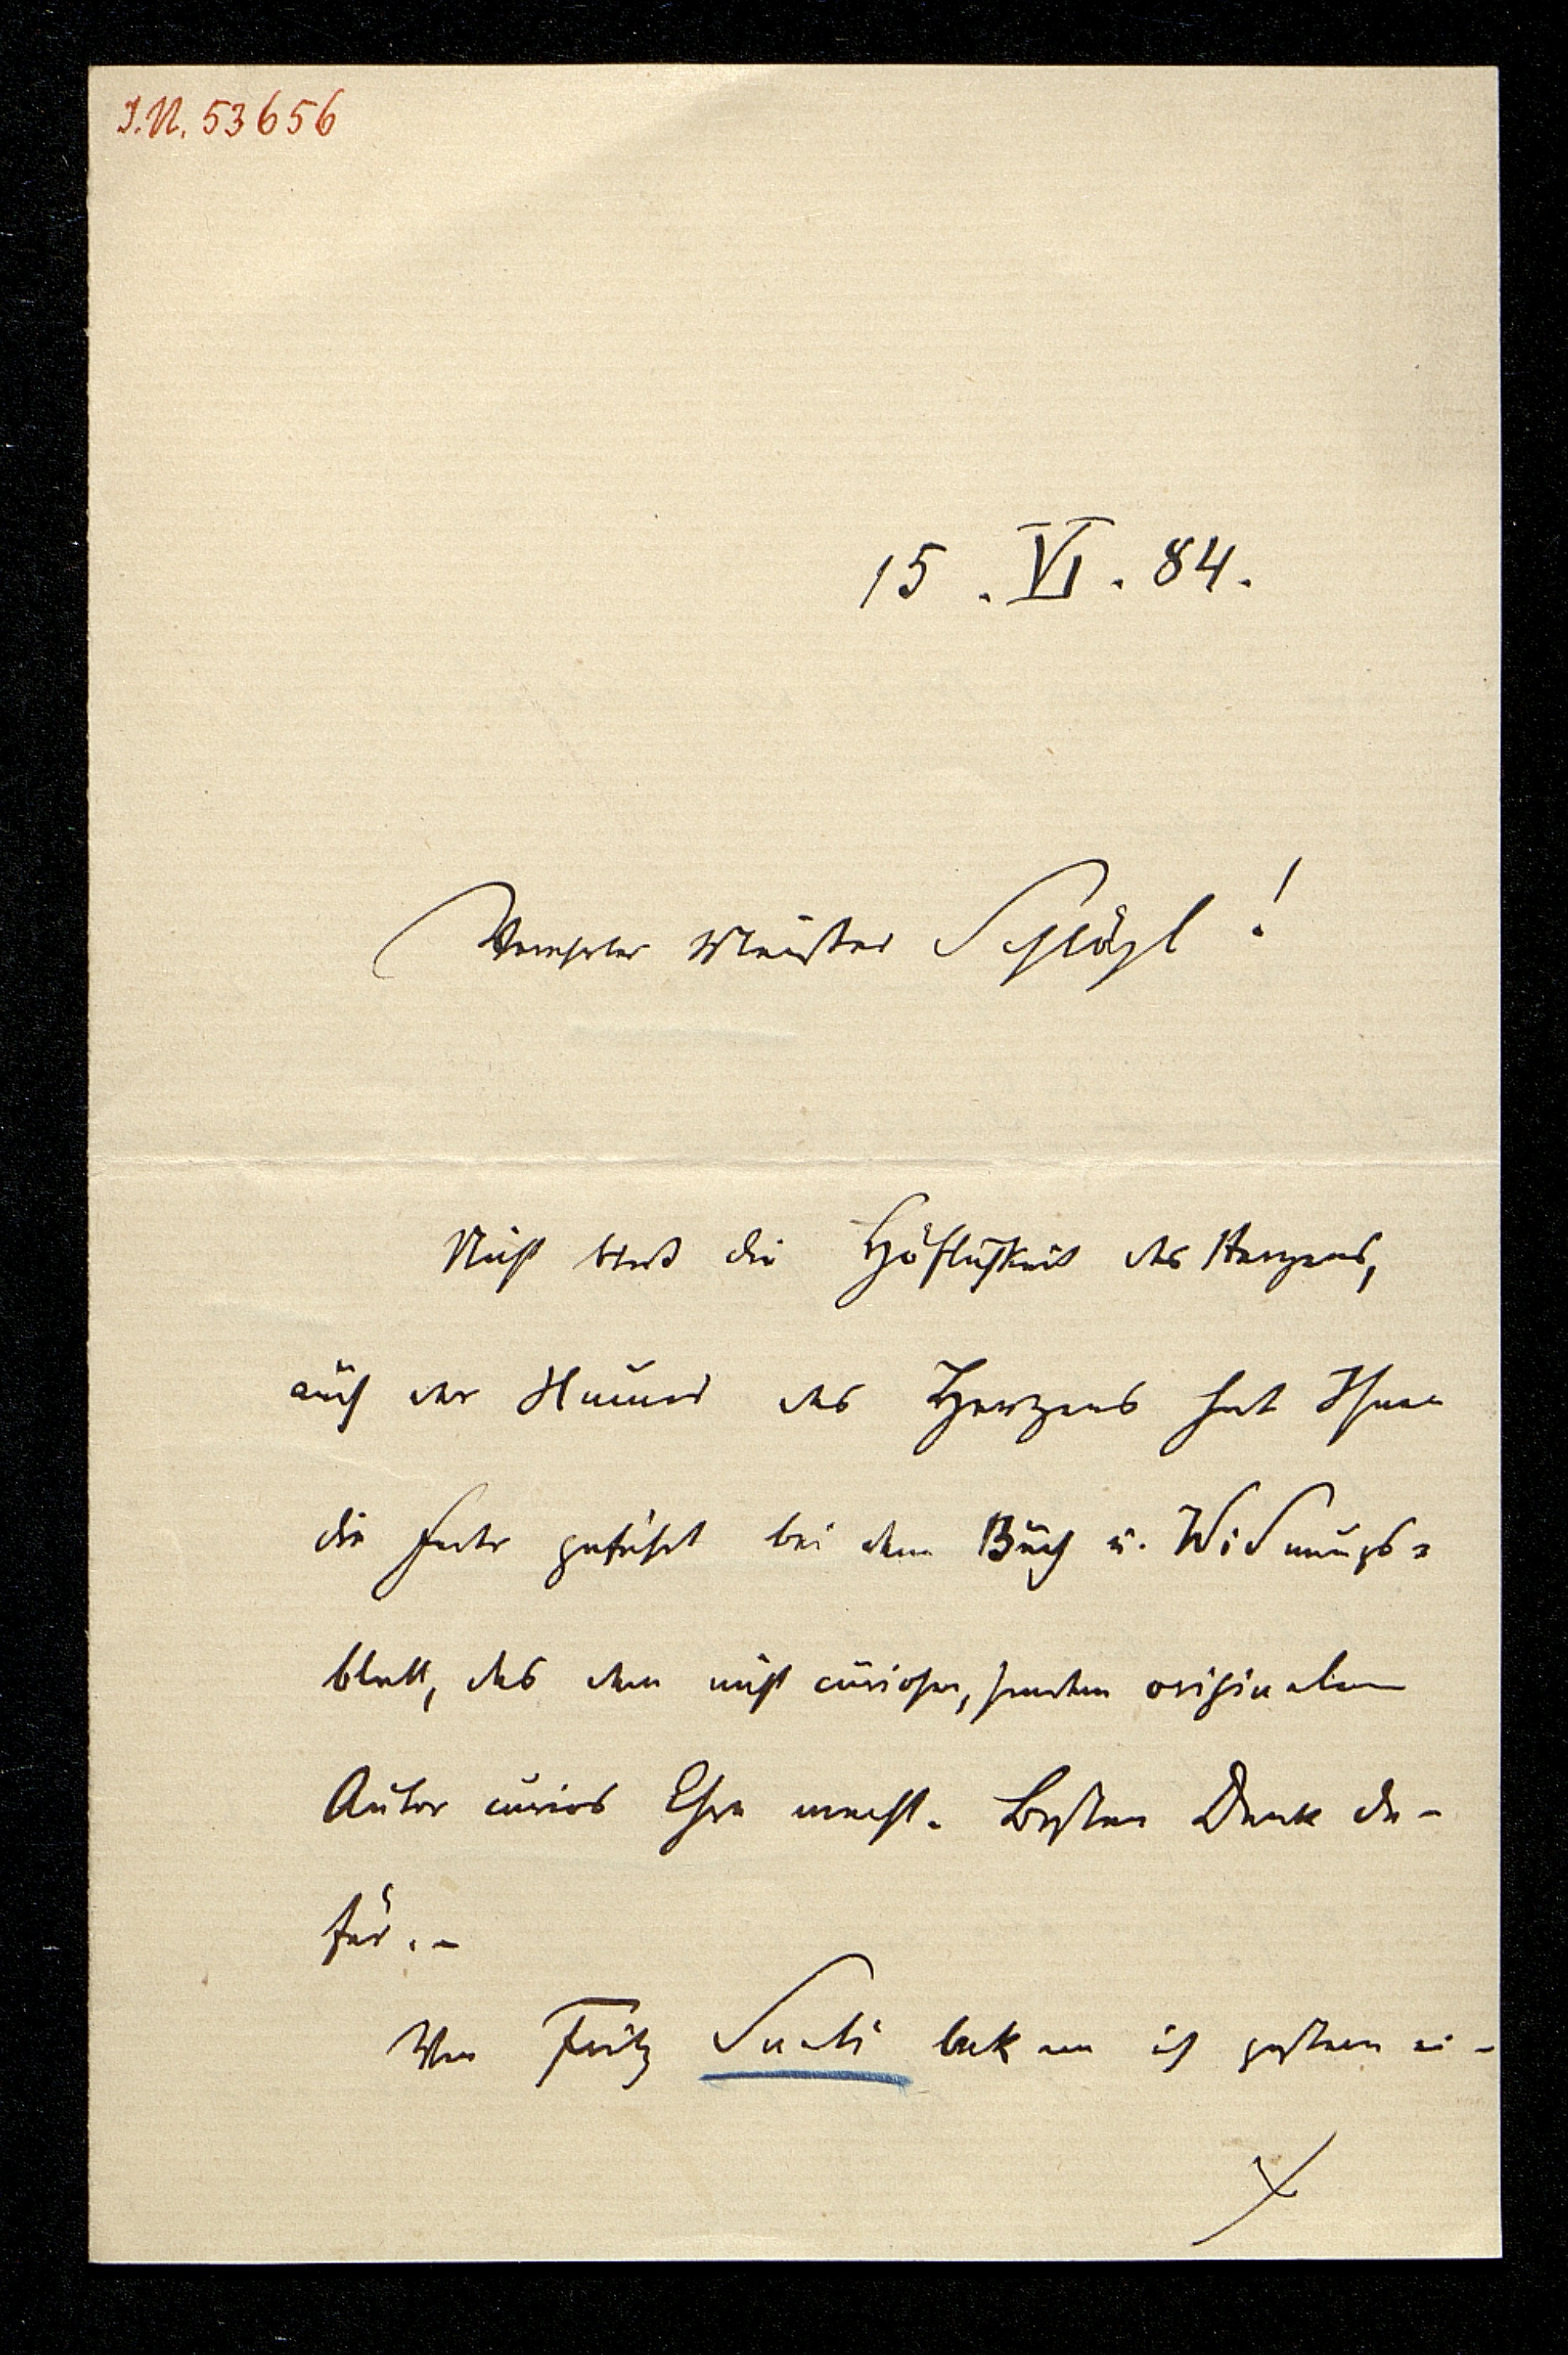 I.N. 53656
15. VI. 84.
Verehrter Meister Schlögl!
Nicht bloß die Höflichkeit des Herzens,
auch der Humor des Herzens hat Ihnen
die Feder geführt bei dem Buch u. Widmungs-
blatt, das dem nicht curiosen, sondern originalen
Autor curios Ehre macht. Besten Dank da-
für. -
Von Fritz bekam ich gestern ei-